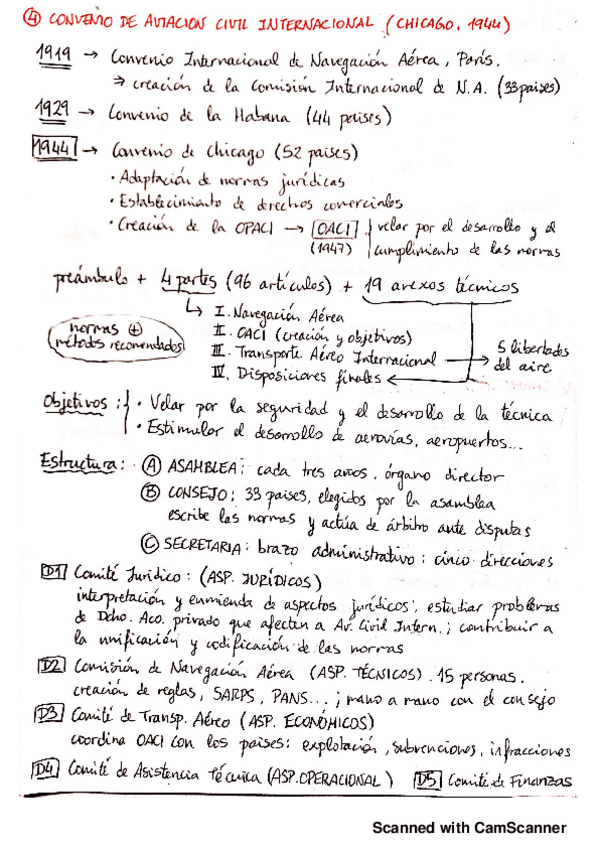 ④ CONVENIO DE AVIACION CIVIL INTERNACIONAL (CHICAGO, 1944)
1919 → Convenio Internacional de Navegación Aérea, París.
⇒ creación de la Comisión Internacional de N.A. (33 países)
1929 → Convenio de la Habana (44 países)
1944 → Convenio de Chicago (52 países)
· Adaptación de normas jurídicas
· Establecimiento de derechos comerciales
· Creación de la OPACI → OACI velar por el desarrollo y el
(1947) cumplimiento de las normas
preámbulo + 4 partes (96 artículos) + 19 anexos técnicos
I. Navegación Aérea
normas ⊕ II. OACI (creación y objetivos)
métodos recomendados III. Transporte Aéreo Internacional → 5 libertades
IV. Disposiciones finales ← del aire
Objetivos : · Velar por la seguridad y el desarrollo de la técnica
· Estimular el desarrollo de aerovías, aeropuertos...
Estructura: Ⓐ ASAMBLEA: cada tres años, órgano director
Ⓑ CONSEJO: 33 países, elegidos por la asamblea
escribe las normas y actúa de árbitro ante disputas
Ⓒ SECRETARIA: brazo administrativo: cinco direcciones
D1 Comité Jurídico: (ASP. JURÍDICOS)
interpretación y enmienda de aspectos jurídicos; estudiar problemas
de Dcho. Aco. privado que afecten a Av. Civil Intern.; contribuir a
la unificación y codificación de las normas
D2 Comisión de Navegación Aérea (ASP. TÉCNICOS). 15 personas.
creación de reglas, SARPS, PANS...; mano a mano con el consejo
D3 Comité de Transp. Aéreo (ASP. ECONÓMICOS)
coordina OACI con los países: explotación, subvenciones, infracciones
D4 Comité de Asistencia Técnica (ASP. OPERACIONAL) D5 Comité de Finanzas
Scanned with CamScanner